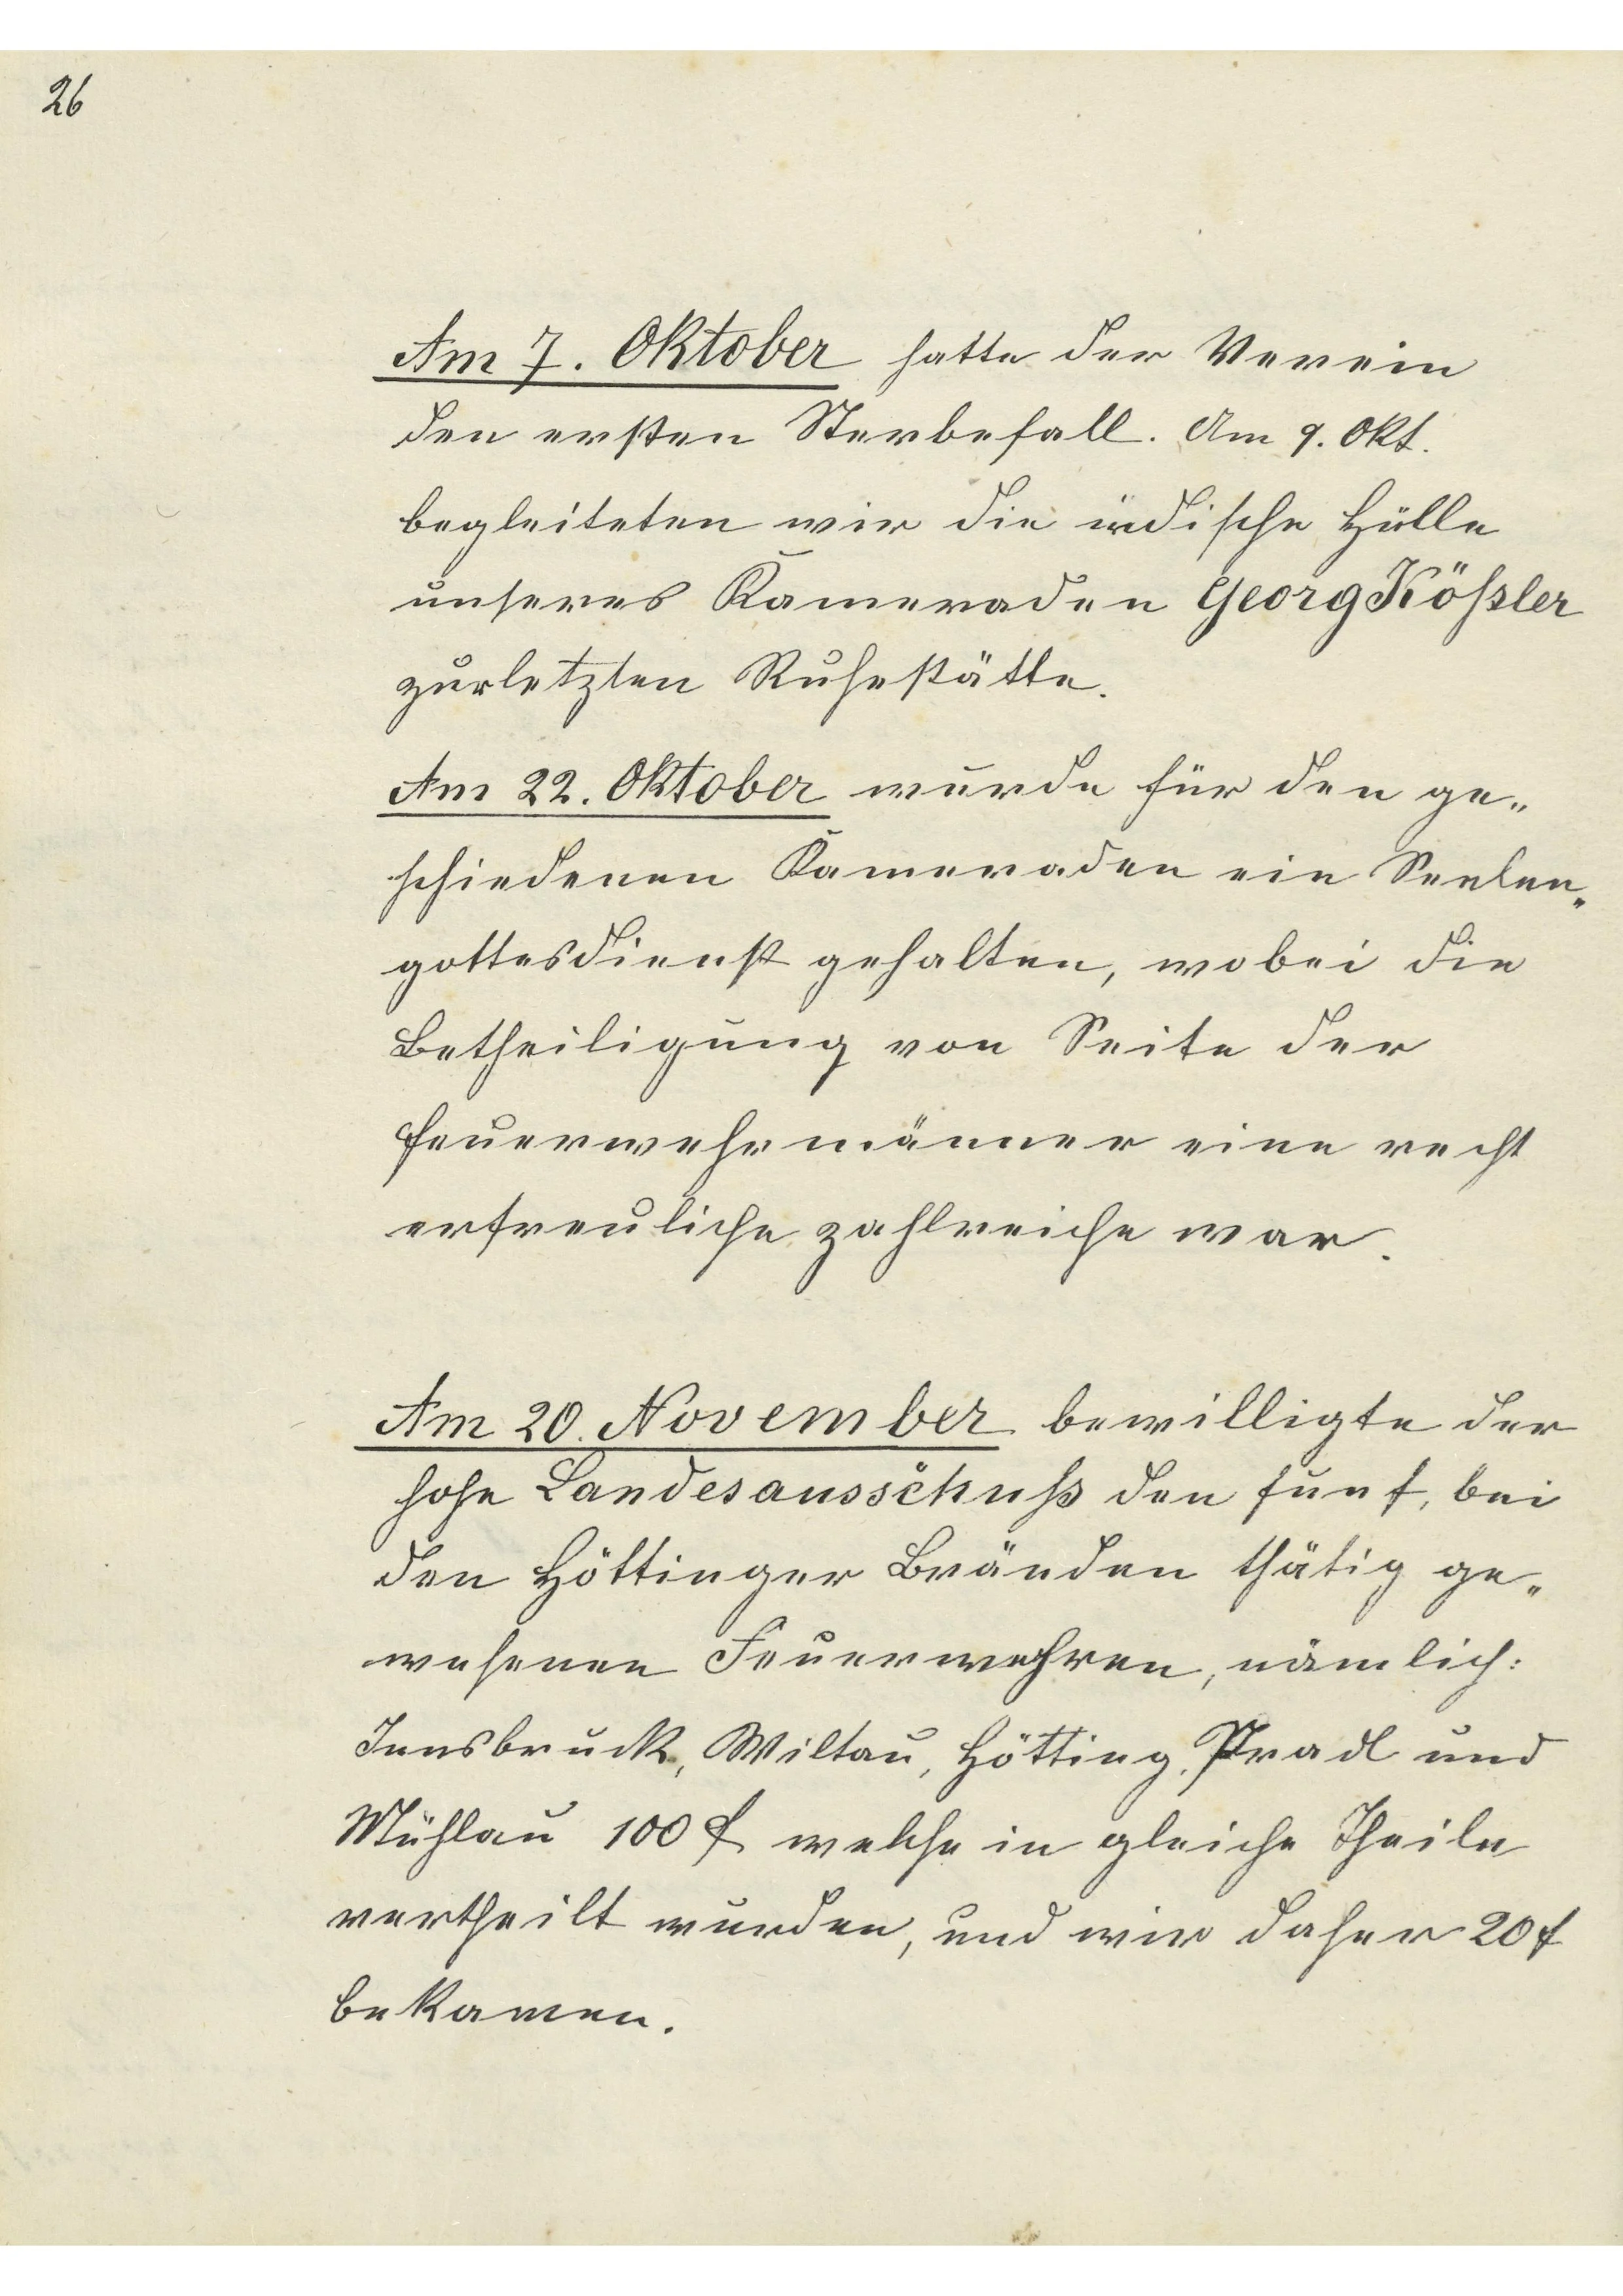 26
Am 7. Oktober hatte der Verein
den ersten Sterbefall. Am 9. Okt.
begleiteten wir die irdische Hülle
unseres Kameraden Georg Kößler
zur letzten Ruhestätte.
Am 22. Oktober wurde für den ge„
schiedenen Kameraden ein Seelen„
gottesdienst gehalten, wobei die
Betheiligung von Seite der
Feuerwehrmänner eine recht
erfreuliche zahlreiche war.
Am 20. November bewilligte der
hohe Landesausschuß den fünf, bei
den Höttinger Bränden thätig ge„
wesenen Feuerwehren, nämlich:
Innsbruck, Wiltau, Hötting, Pradl und
Mühlau 100 f welche in gleiche Theile
vertheilt wurden, und wir daher 20 f
bekamen.